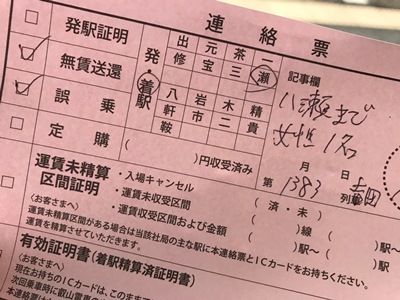 連絡票
発駅証明
無賃送還
誤乗
定購
発・着駅
出 元 茶 一
修 宝 三 瀬
八 岩 木 精
軒 市 二 貴
鞍
(　　)円収受済み
記事欄
八瀬まで
女性1名
月　日
第 1383 列車
運賃未精算
区間証明
・入場キャンセル
・運賃未収受区間　(済・未)
・運賃未収受区間および金額 (　　)線 (　　)駅〜(　　)駅
(　　)駅〜(
(お客さまへ)
運賃未精算区間がある場合は当該社局の主な駅に本連絡票とICカードをお持ちください。
運賃を精算させていただきます。
有効証明書(着駅精算済証明書)
(お客さまへ)
現在お持ちのICカードは、このまま
次回乗車時に叡山電車の
本連絡票は